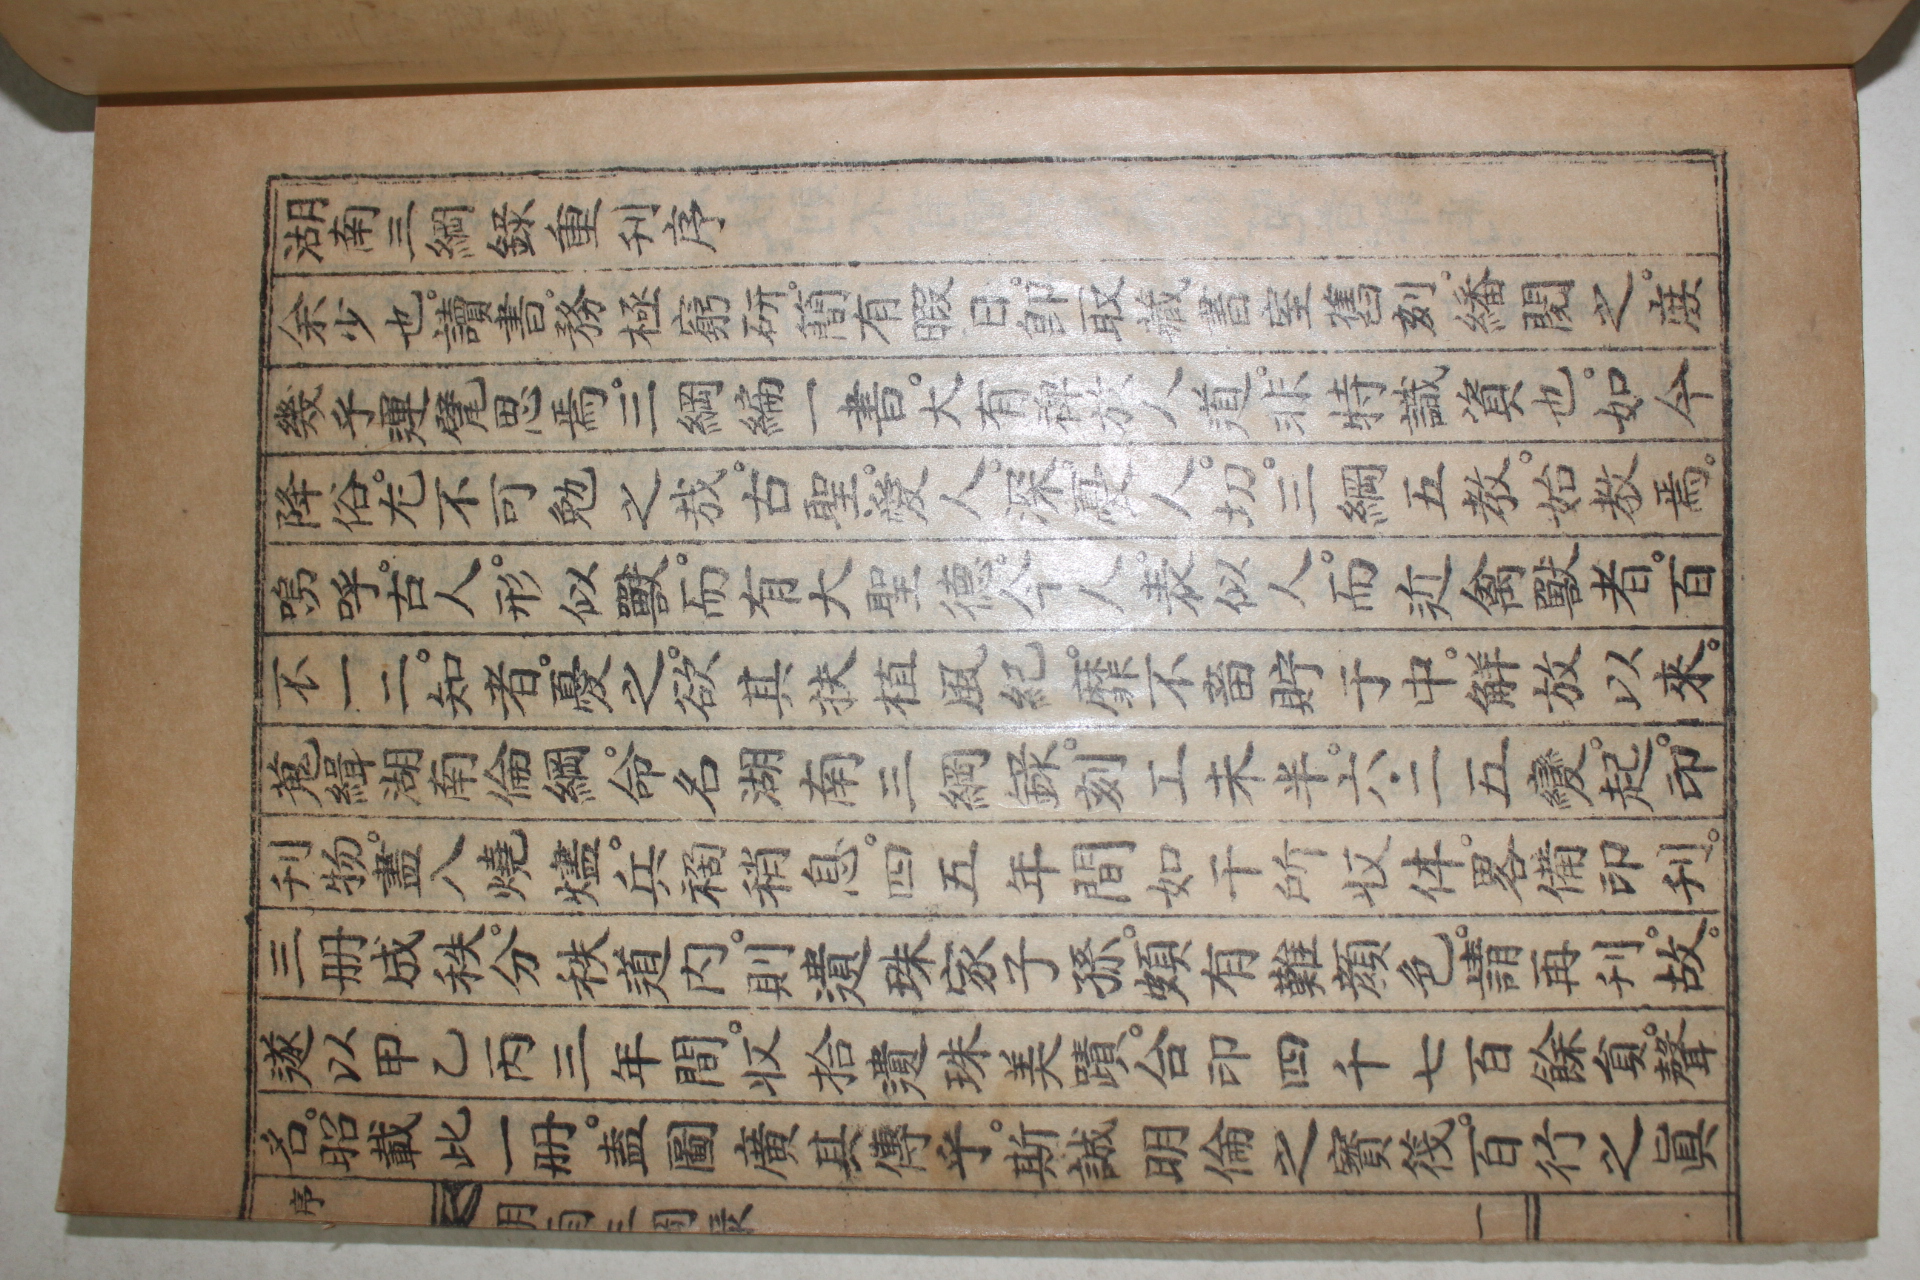 湖南三綱錄重刊序
余少也。讀書。務極窮硏。簡有暇日。卽取藏書室舊刻。繙閱之。庶
幾乎運甓思焉。三綱編一書。大有裨於人道。非特識資也。如今
降俗。尤不可勉之哉。古聖。愛人。深憂人。切。三綱五敎。始敎焉。
嗚呼。古人。形似獸。而有大聖德。今人。表似人。而近禽獸者。百
不一二。知者。憂之。欲其扶植風紀。靡不蓄貯于中。解放以來。
蒐緝湖南倫綱。命名湖南三綱錄。刻工未半。六·二五變。起。印
刊物。盡入燒燼。兵禍稍息。四五年間如干所收件。畧備印刊。
三册成秩。分秩道內。則遺珠家子孫。頗有難顔色。請再刊。故。
遂以甲乙丙三年間。收拾遺珠美蹟。合印四千七百餘員。聲
名。昭載此一册。盖圖廣其傳乎。斯誠明倫之寶筏。百行之眞
序
湖南三綱錄
一